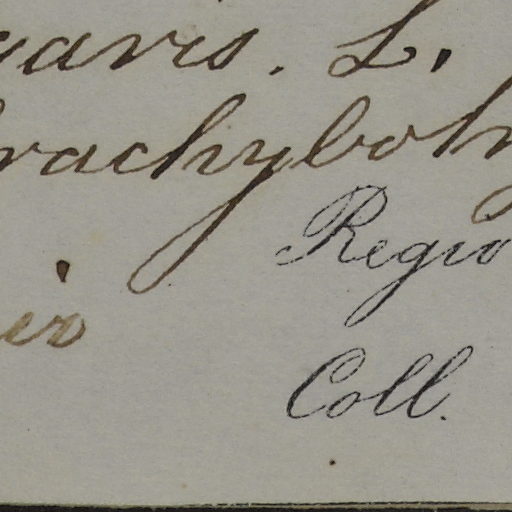 garis. L.
rachyboly
Regio
io
Coll.